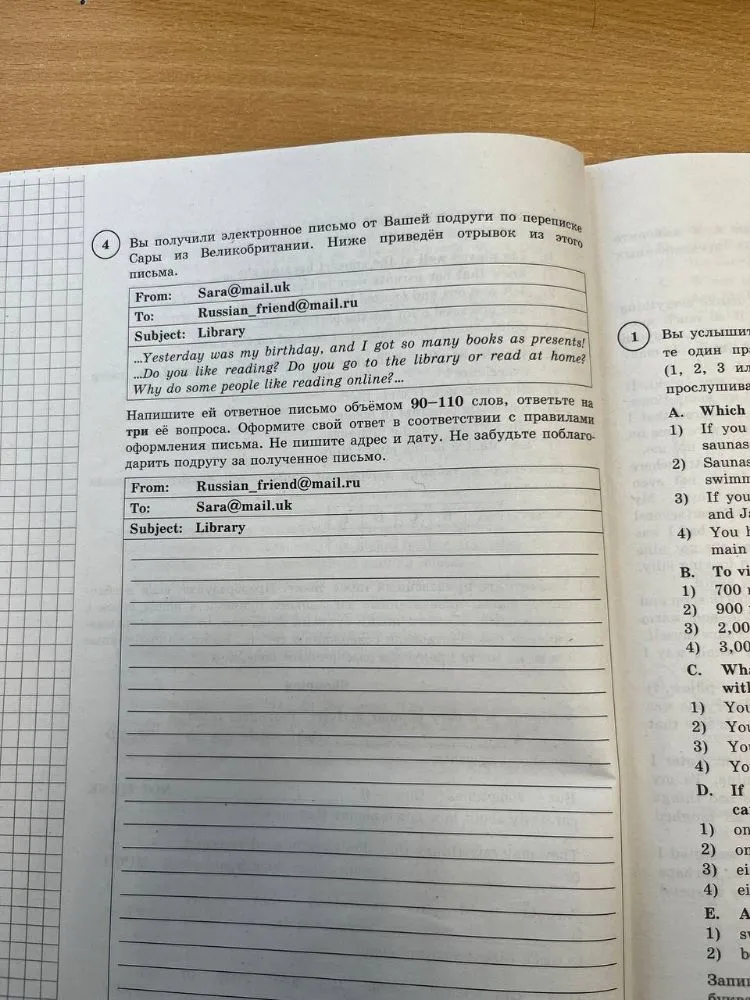 4
Вы получили электронное письмо от Вашей подруги по переписке
Сары из Великобритании. Ниже приведён отрывок из этого
письма.
From: Sara@mail.uk
To: Russian_friend@mail.ru
Subject: Library
...Yesterday was my birthday, and I got so many books as presents!
...Do you like reading? Do you go to the library or read at home?
Why do some people like reading online?...
Напишите ей ответное письмо объёмом 90—110 слов, ответьте на
три её вопроса. Оформите свой ответ в соответствии с правилами
оформления письма. Не пишите адрес и дату. Не забудьте поблаго-
дарить подругу за полученное письмо.
From: Russian_friend@mail.ru
To: Sara@mail.uk
Subject: Library
1
Вы услышит
те один пра
(1, 2, 3 ил
прослушива
A. Which
1) If you
saunas
2) Saunas
swimm
3) If you
and Ja
4) You h
main
B. To vi
1) 700
2) 900
3) 2,00
4) 3,00
C. Wha
with
1) You
2) You
3) You
4) Yo
D. If
ca
1) on
2) on
3) ei
4) ei
E. A
1) sw
2) b
Запи